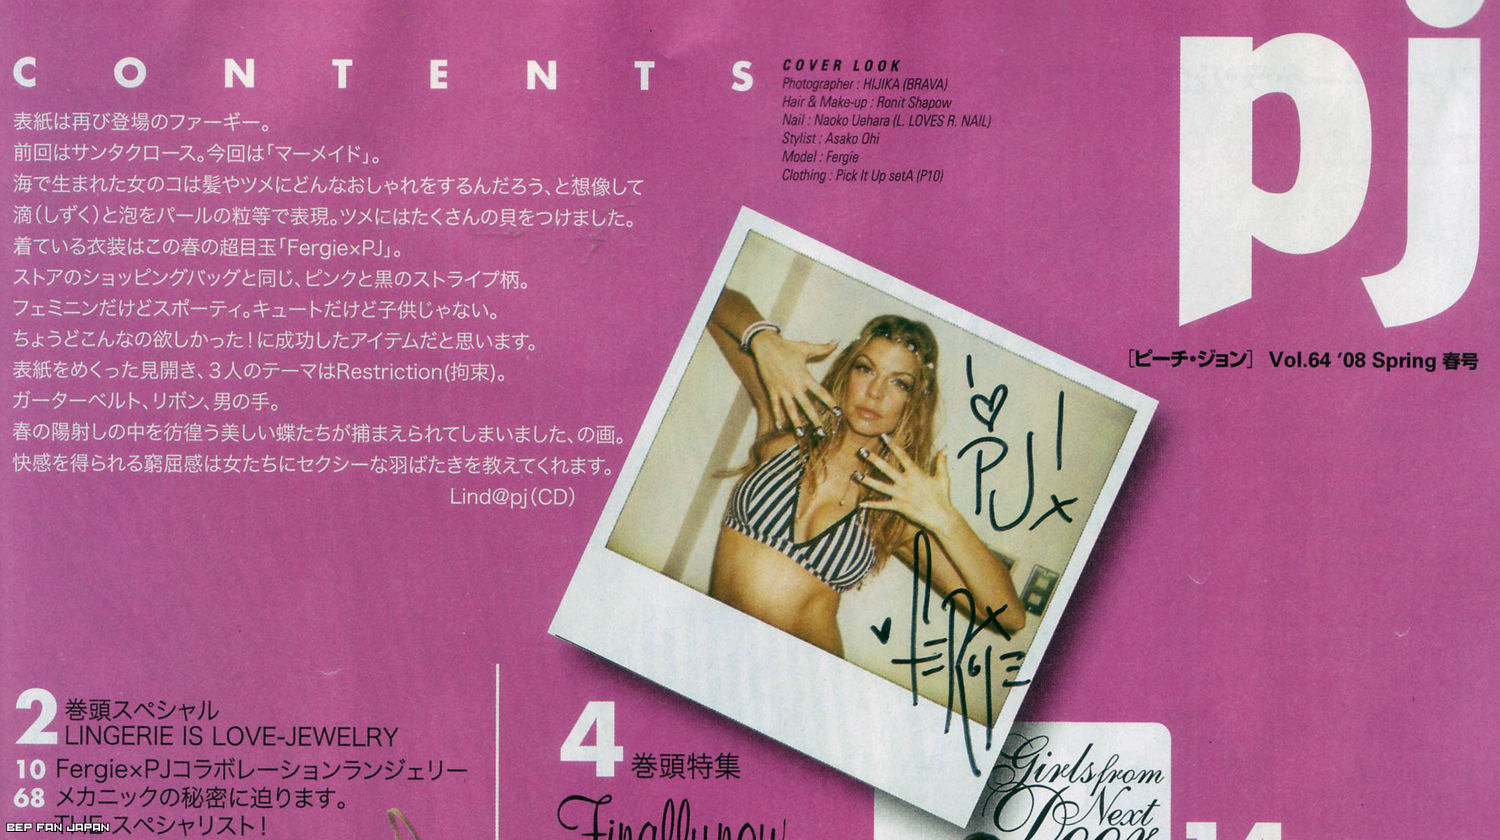 CONTENTS
表紙は再び登場のファーギー。
前回はサンタクロース。今回は「マーメイド」。
海で生まれた女のコは髪やツメにどんなおしゃれをするんだろう、と想像して
滴(しずく)と泡をパールの粒等で表現。ツメにはたくさんの貝をつけました。
着ている衣装はこの春の超目玉「Fergie×PJ」。
ストアのショッピングバッグと同じ、ピンクと黒のストライプ柄。
フェミニンだけどスポーティ。キュートだけど子供じゃない。
ちょうどこんなの欲しかった!に成功したアイテムだと思います。
表紙をめくった見開き、3人のテーマはRestriction(拘束)。
ガーターベルト、リボン、男の手。
春の陽射しの中を彷徨う美しい蝶たちが捕まえられてしまいました、の画。
快感を得られる窮屈感は女たちにセクシーな羽ばたきを教えてくれます。
Lind@pj(CD)
COVER LOOK
Photographer : HIJIKA (BRAVA)
Hair & Make-up : Ronit Shapow
Nail : Naoko Uehara (L. LOVES R. NAIL)
Stylist : Asako Ohi
Model : Fergie
Clothing : Pick It Up setA (P10)
pj
[ピーチ・ジョン] Vol.64 '08 Spring 春号
I
♥
PJ!
x
♥ FERGIE
2 巻頭スペシャル
LINGERIE IS LOVE-JEWELRY
10 Fergie×PJコラボレーションランジェリー
68 メカニックの秘密に迫ります。
THE スペシャリスト!
4 巻頭特集
Finally now
Girls from
Next
Door
14
BEP FAN JAPAN